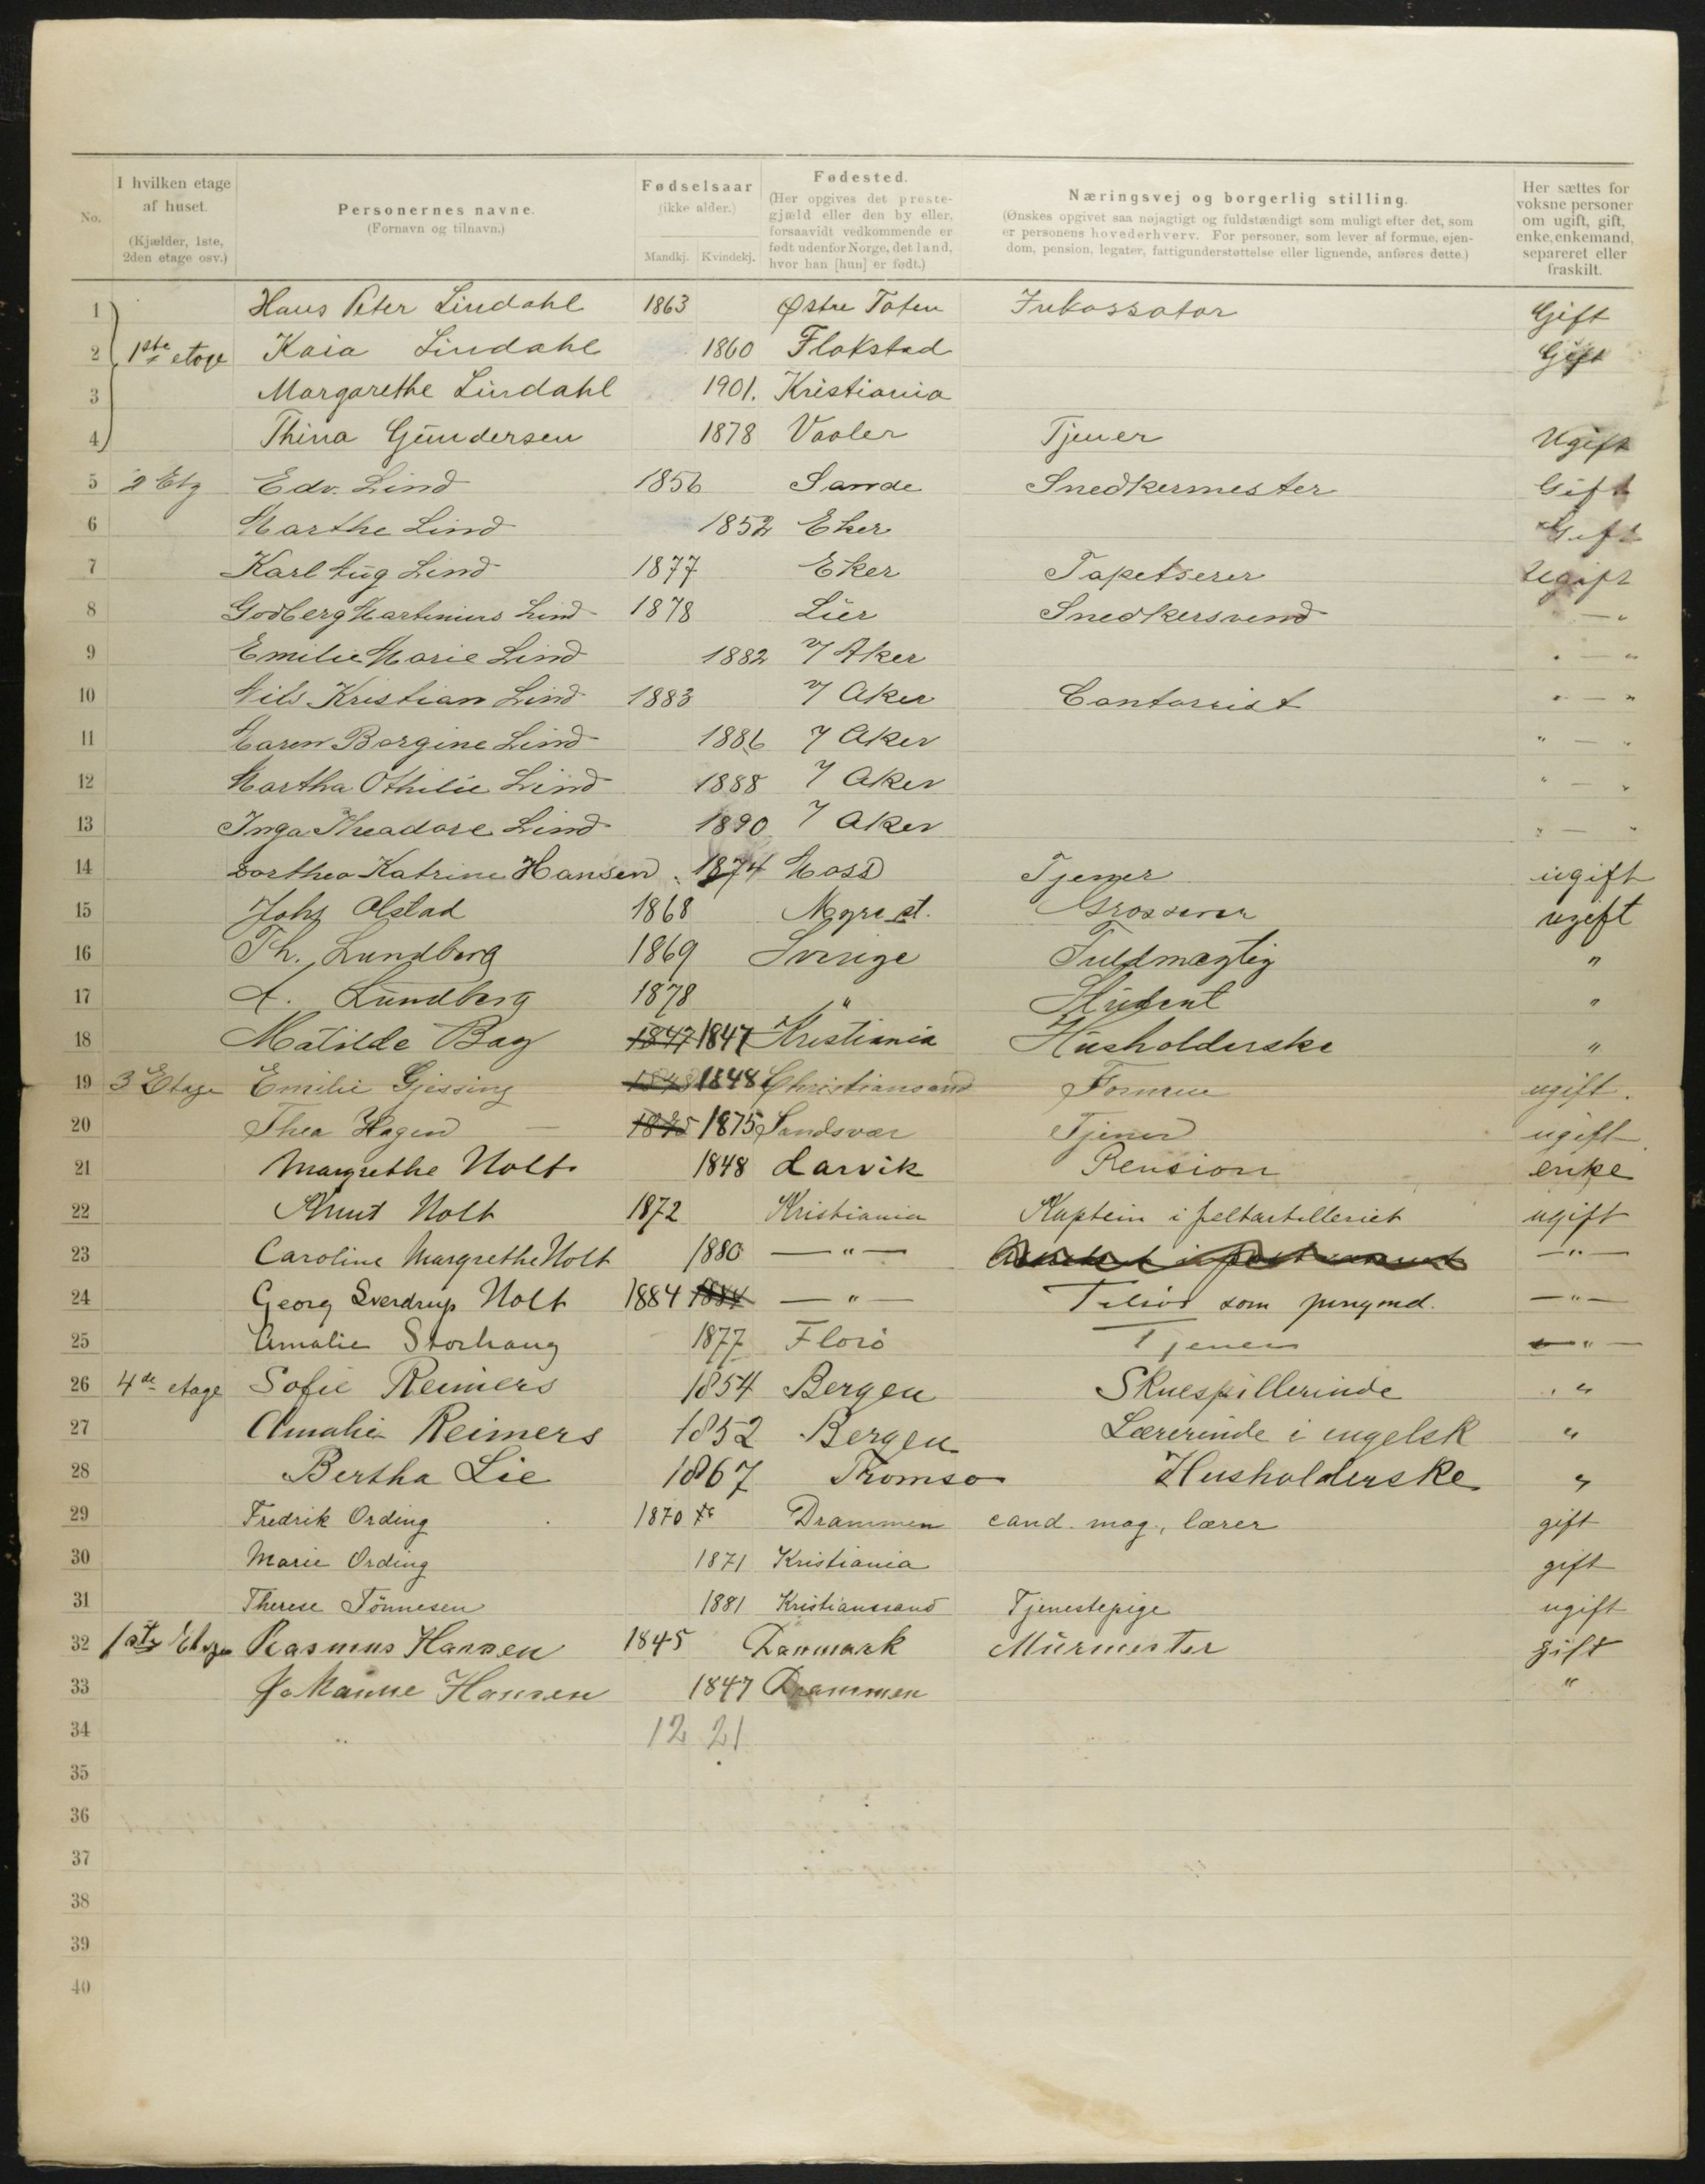 I hvilken etage af huset. (Kjælder, 1ste, 2den etage osv.)
No.
Personernes navne. (Fornavn og tilnavn.)
Fødselsaar (ikke alder.) Mandkj. Kvindekj.
Fødested. (Her opgives det prestegjæld eller den by eller, forsaavidt vedkommende er født udenfor Norge, det land, hvor han [hun] er født.)
Næringsvej og borgerlig stilling. (Ønskes opgivet saa nøjagtigt og fuldstændigt som muligt efter det, som er personens hovederhverv. For personer, som lever af formue, ejendom, pension, legater, fattigunderstøttelse eller lignende, anføres dette.)
Her sættes for voksne personer om ugift, gift, enke, enkemand, separeret eller fraskilt.
1 Hans Peter Lindahl 1863 Østre Toten Inkassator Gift
2 1ste etage Kaia Lindahl 1860 Flakstad Gift
3 Margarethe Lindahl 1901. Kristiania
4 Thina Gundersen 1878 Vaaler Tjener Ugift
5 2 Etg Edv. Lind 1856 Sande Snedkermester Gift
6 Marthe Lind 1852 Eker Gift
7 Karl Aug Lind 1877 Eker Tapetserer Ugift
8 Godberg Martinius Lind 1878 Lier Snedkersvend " — "
9 Emilie Marie Lind 1882 V Aker " — "
10 Nils Kristian Lind 1883 V Aker Contorist " — "
11 Maren Bergine Lind 1886 V Aker " — "
12 Martha Othilie Lind 1888 V Aker " — "
13 Inga Theadore Lind 1890 V Aker " — "
14 Dorthea Katrine Hansen 1874 Moss Tjener ugift
15 Johs Alstad 1868 Grosserer ugift
16 Th. Lundberg 1869 Sverige Fuldmægtig "
17 A. Lundberg 1878 " Student "
18 Matilde Bay 1847 1847 Kristiania Husholderske "
19 3 Etage Emilie Gjessing 1848 1848 Christiansand Formue ugift.
20 Thea Hagen — 1875 1875 Sandsvær Tjener ugift
21 Margrethe Holt. 1848 Larvik Pension enke
22 Knut Holt 1872 Kristiania Kaptein i feltartilleriet ugift
23 Caroline Margrethe Holt 1880 — " — — " —
24 Georg Sverdrup Holt 1884 1884 — " — Tilsjøs som jungmd. — " —
25 Amalie Storhaug 1877 Florö Tjener — " —
26 4de etage Sofie Reimers 1854 Bergen Skuespillerinde "
27 Amalie Reimers 1852 Bergen Lærerinde i engelsk "
28 Bertha Lie 1867 Tromsø Husholderske "
29 Fredrik Ording 1870 Drammen cand. mag., lærer gift
30 Marie Ording 1871 Kristiania gift
31 Therese Tönnesen 1881 Kristianssand Tjenestepige ugift
32 1ste Etage Rasmus Hansen 1845 Danmark Murmester gift
33 Johanne Hansen 1847 Drammen "
34 12 21
35
36
37
38
39
40